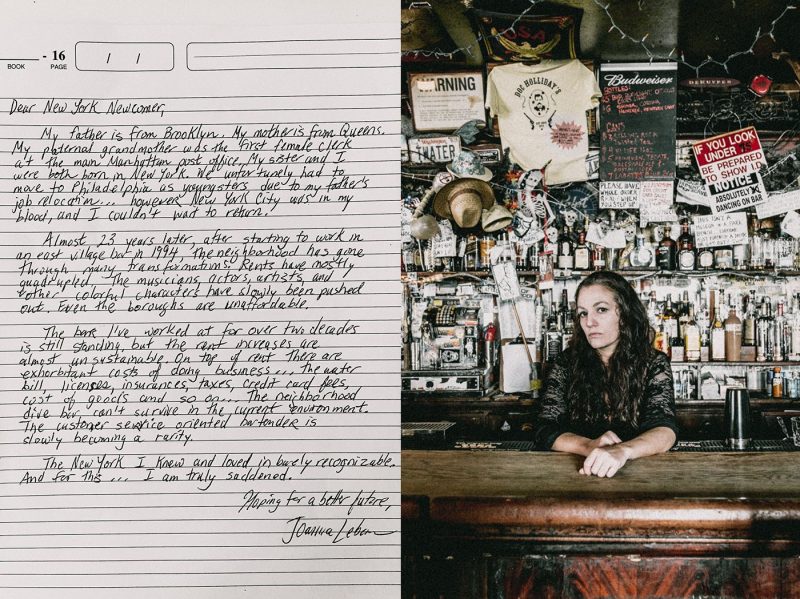 - 16
BOOK PAGE
/ /
Dear New York Newcomer,
My father is from Brooklyn. My mother is from Queens.
My paternal grandmother was the first female clerk
at the main Manhattan post office. My sister and I
were both born in New York. We unfortunetly had to
move to Philadelphia as youngsters due to my father's
job relocation... however, New York City was in my
blood, and I couldn't wait to return.
Almost 23 years later, after starting to work in
an east village bar in 1994, The neighborhood has gone
through many transformations. Rents have mostly
quadrupled. The musicians, actors, artists, and
other colorful characters have slowly been pushed
out. Even the boroughs are unaffordable.
The bar I've worked at for over two decades
is still standing, but the rent increases are
almost unsustainable. On top of rent there are
exhorbitant costs of doing business... the water
bill, licenses, insurances, taxes, credit card fees,
cost of goods and so on... The neighborhood
dive bar can't survive in the current environment.
The customer service oriented bartender is
slowly becoming a rarity.
The New York I knew and loved in barely recognizable.
And for this... I am truly saddened.
Hoping for a better future,
Joanna Leban
USA
WARNING
DOC HOLLIDAY'S
THWATER
Budweiser
BOTTLES:
CAN:
DEKUYPER
IF YOU LOOK
UNDER
BE PREPARED
TO SHOW I.D.
NOTICE
ABSOLUTELY
DANCING ON BAR
PLEASE HAVE
YOUR
WHOLE ORDER
READY WHEN
YOU STEP UP